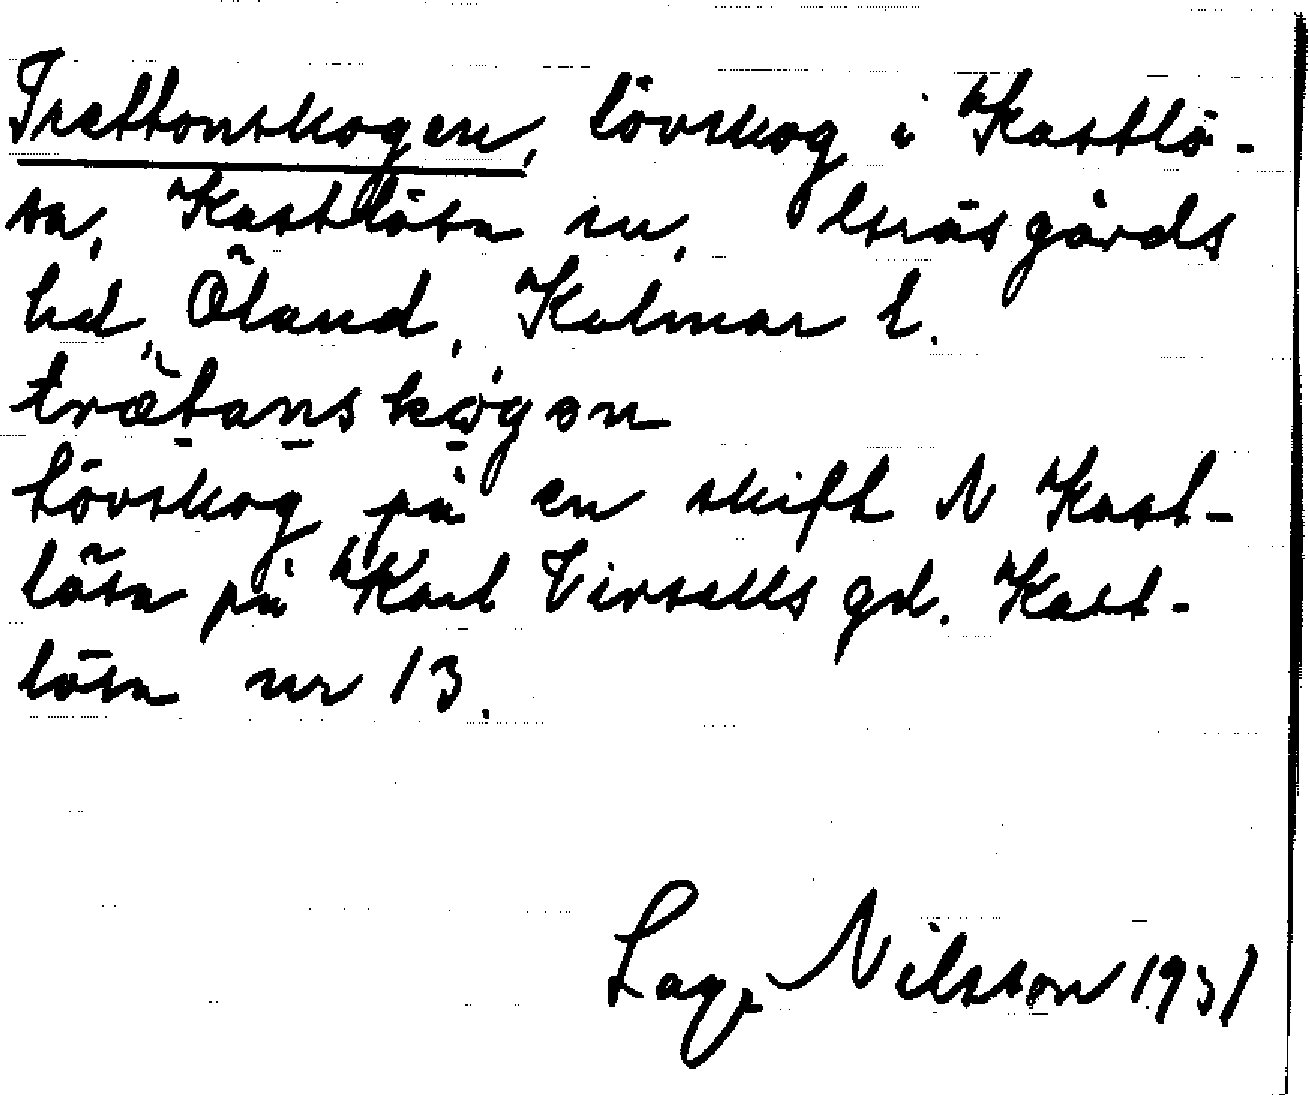 Trettonskogen, lövskog i Kastlö-
sa, Kastlösa sn, Algutsgårds
hd, Öland, Kalmar l.
trætanskogən
Lövskog på en skift N Kast-
lösa på Karl Virsells gd. Kast-
lösa nr 13.
Lage Nilsson 1931